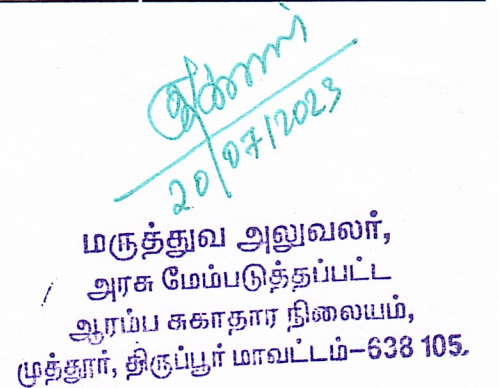 20/07/2023
மருத்துவ அலுவலர்,
அரசு மேம்படுத்தப்பட்ட
ஆரம்ப சுகாதார நிலையம்,
முத்தூர், திருப்பூர் மாவட்டம்-638 105.